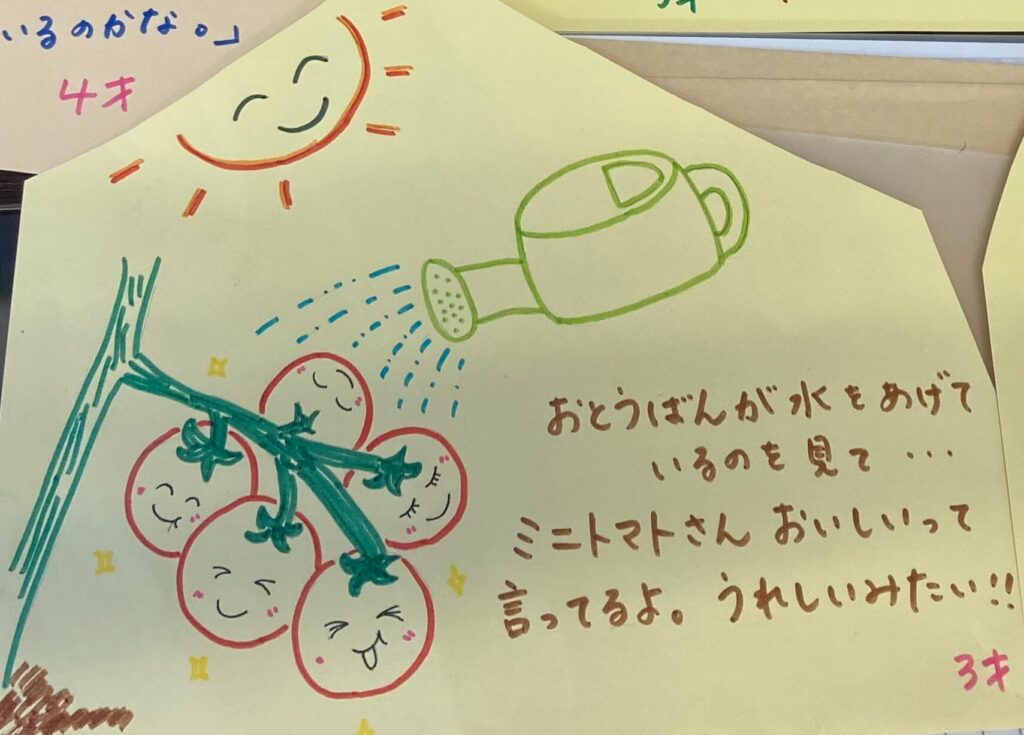 いるのかな。」
4才
おとうばんが水をあげて
いるのを見て…
ミニトマトさん おいしいって
言ってるよ。うれしいみたい!!
3才